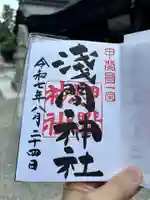 甲斐國一宮
淺間神社
令和七年八月二十四日